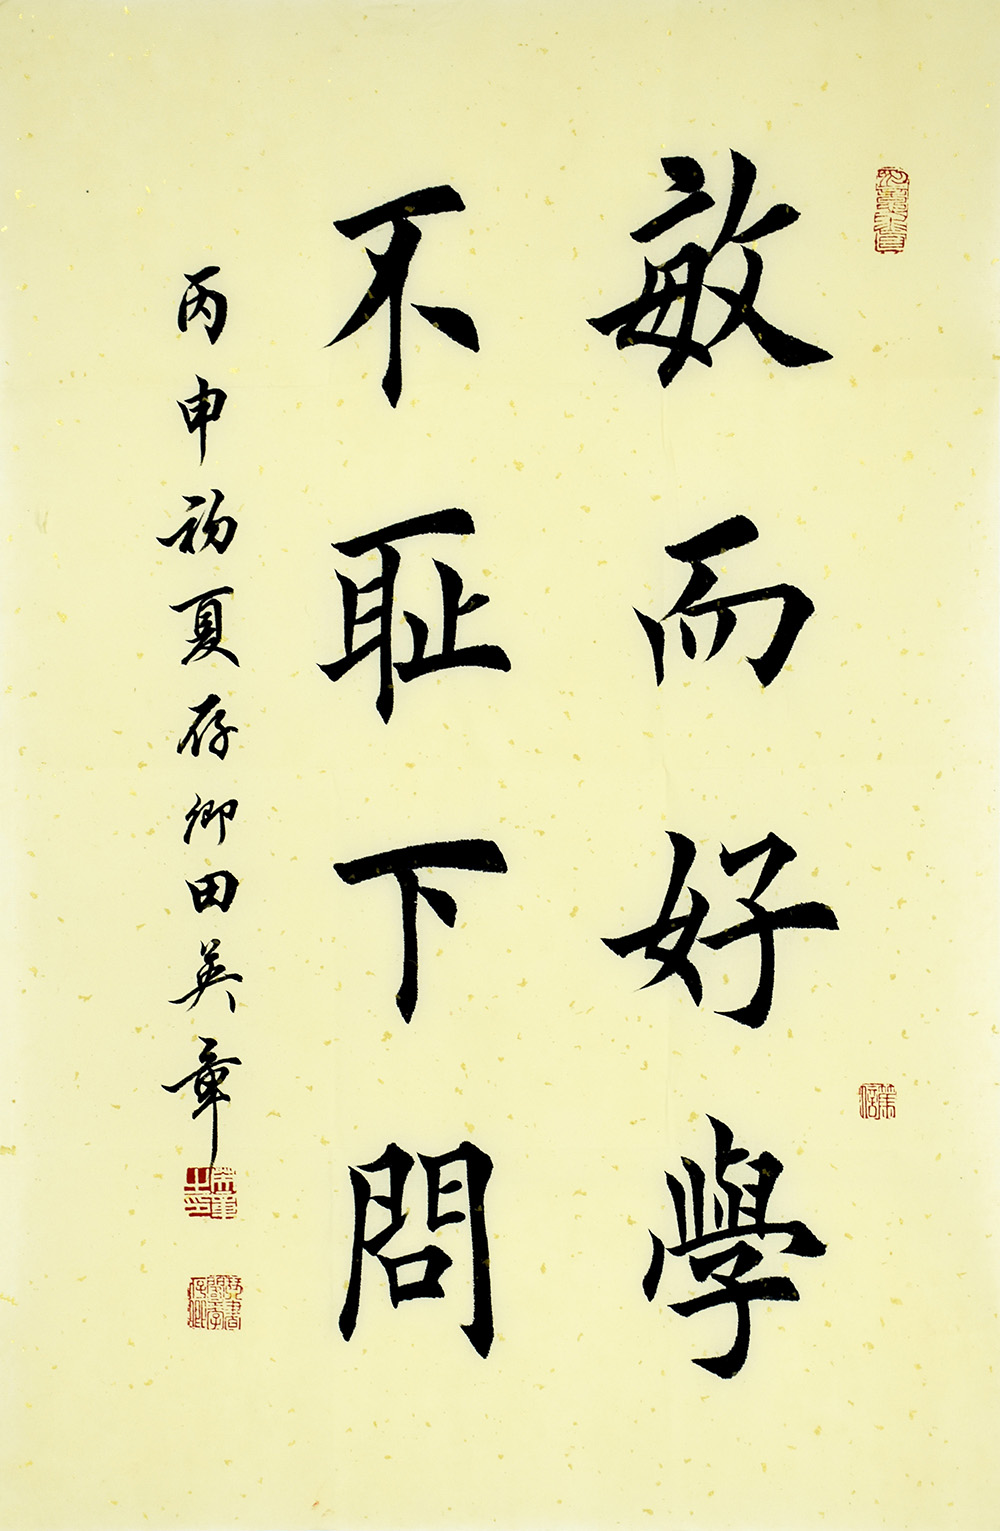 敏而好學
不耻下問
丙申初夏存卿田英章